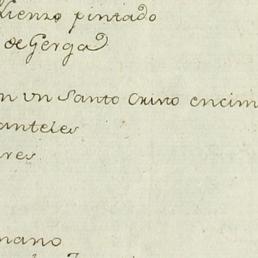 Lienzo pintado
de Gerga
n vn Santo Cristo encim
anteles
res
mano